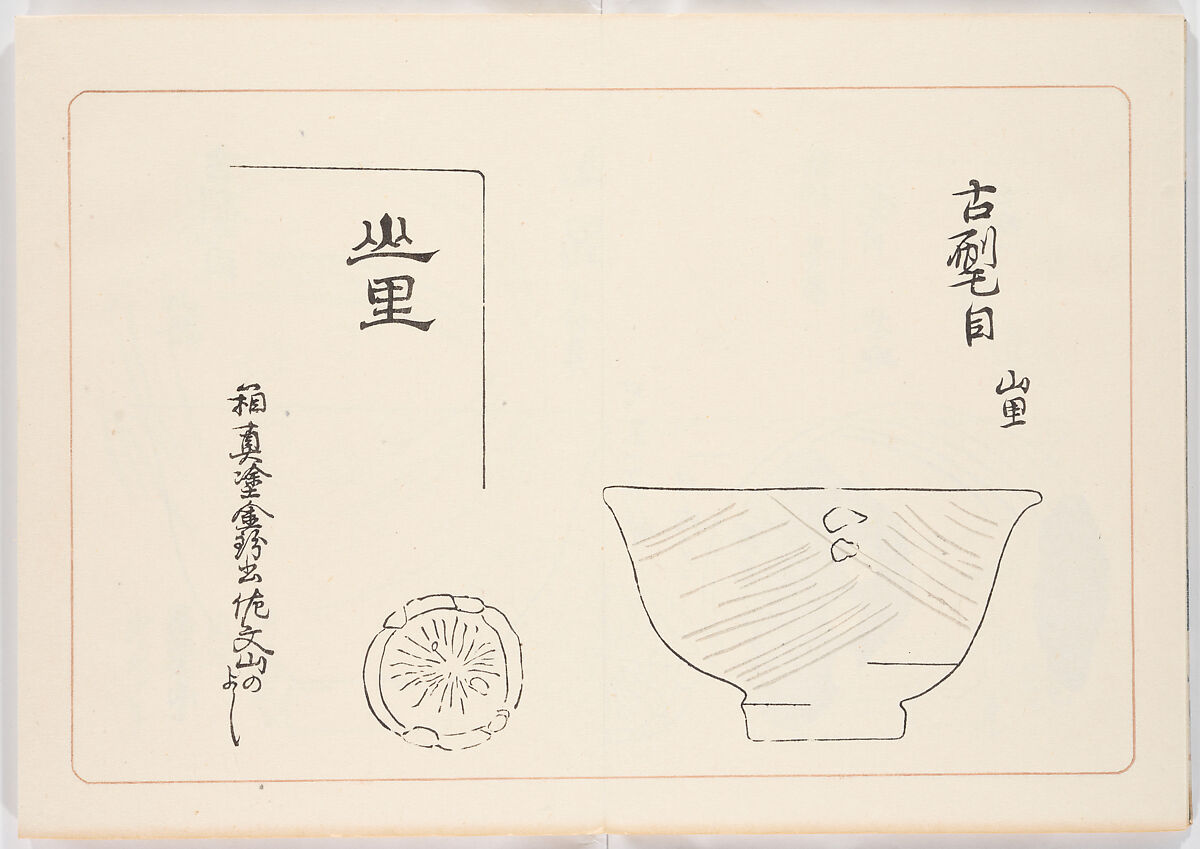 古刷毛目
山里
山里
箱真塗金粉書佐文山の
よし